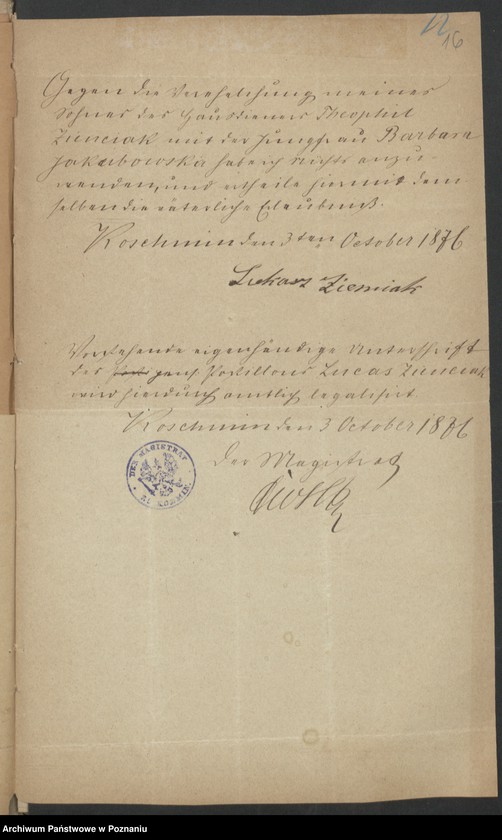 12
16
Gegen die Verehelichung meines
Sohnes des Hausdieners Theophil
Ziemiak mit der Jungfrau Barbara
Jakubowska habe ich nichts anzu-
wenden, und ertheile hiermit dem
selben die väterliche Erlaubniß.
Koschmin den 3ten October 1876
Lukasz Ziemiak
Vorstehende eigenhändige Unterschrift
des Postillons Lucas Ziemiak
wird hierdurch amtlich legalisirt.
Koschmin den 3 October 1876
Der Magistrat
DER MAGISTRAT
ZU KOSMIN.
Archiwum Państwowe w Poznaniu